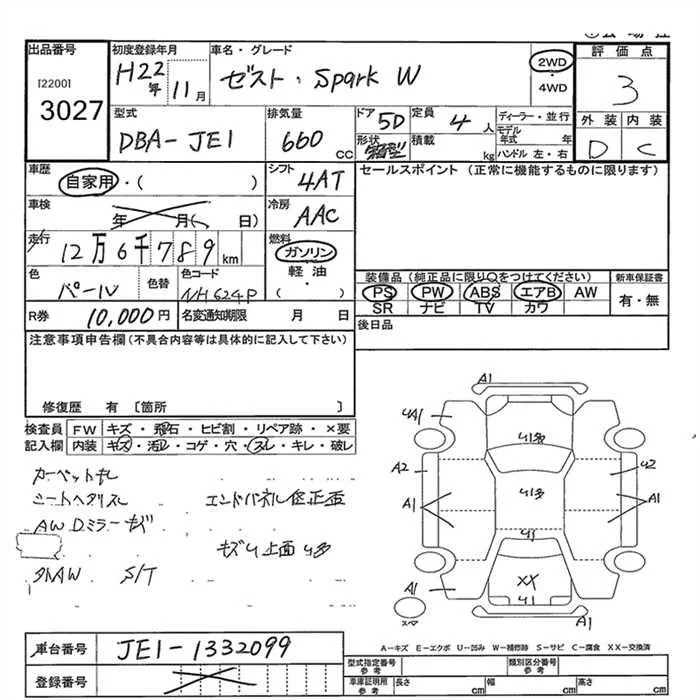 出品番号
[2200]
3027
初度登録年月
H22年 11月
車名・グレード
ゼスト・Spark W
2WD
・
4WD
評価点
3
型式
DBA-JE1
排気量
660 CC
ドア 5D
定員 4人
形状 箱型
積載 kg
ディーラー・並行
モデル年式 年
ハンドル 左・右
外装 内装
D C
車歴
自家用・( )
シフト
4AT
セールスポイント (正常に機能するものに限ります)
車検
年 月( 日)
冷房
AAC
走行
12万6千789km
燃料
ガソリン
軽油
( )
色
パール
色替
色コード
NH624P
装備品 (純正品に限り○をつけてください)
PS PW ABS エアB AW
SR ナビ TV カワ
新車保証書
有・無
R券 10,000円
名変通知期限 月 日
後日品
注意事項申告欄(不具合内容等は具体的に記入して下さい)
修復歴 有 〔箇所 〕
検査員記入欄
FW キズ・飛石・ヒビ割・リペア跡・×要
内装 キズ・汚レ・コゲ・穴・スレ・キレ・破レ
シートヘタリスレ
エンドパネル
AW Dミラーキズ
S/T
A1
A2
A1
A1
A1
A1
XX
A-キズ E-エクボ U-凹み W-補修跡 S-サビ C-腐食 XX-交換済
車台番号 JE1-1332099
登録番号
型式指定番号 参考
類別区分番号 参考
車庫証明用 参考
長さ cm
幅 cm
高さ cm